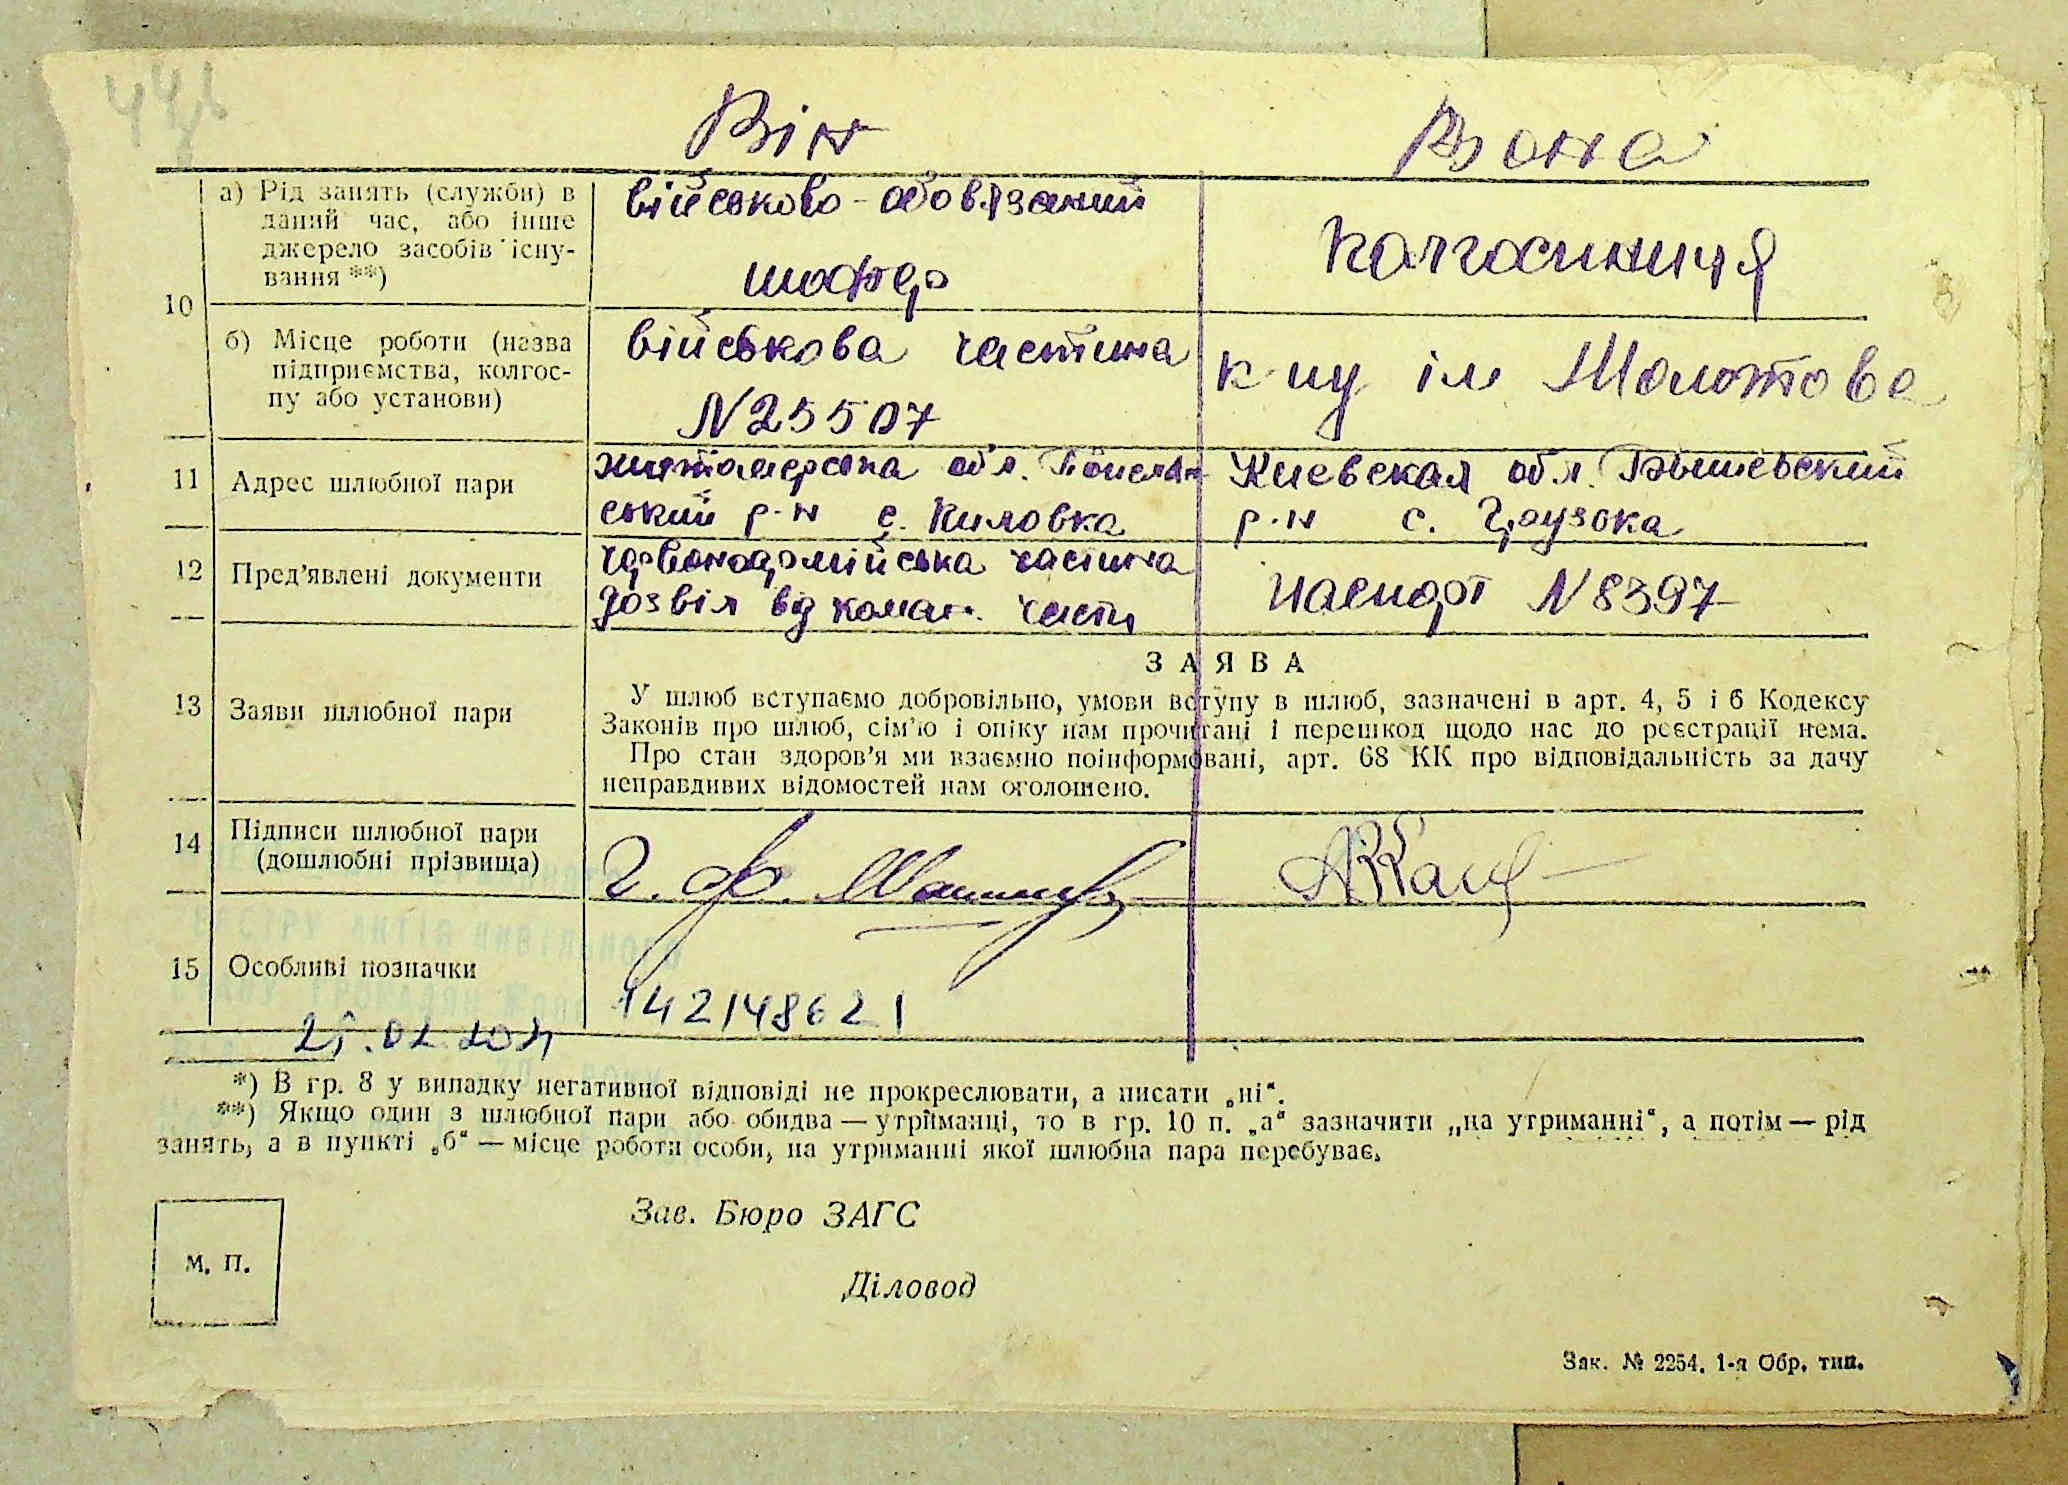 Він Вона
10
а) Рід занять (служби) в
даний час, або інше
джерело засобів існу-
вання **)
військово-обовязаний
шофер
колгоспниця
б) Місце роботи (назва
підприємства, колгос-
пу або установи)
військова частина
N 25507
к-пу ім Молотова
11 Адрес шлюбної пари
житомерська обл.
ський р-н с. Киловка
Киевская обл. Бышевский
р-н с. Грузска
12 Пред'явлені документи
червоноармійська частина
дозвіл від коман. части
паспорт N 8397
13 Заяви шлюбної пари
ЗАЯВА
У шлюб вступаємо добровільно, умови вступу в шлюб, зазначені в арт. 4, 5 і 6 Кодексу
Законів про шлюб, сім'ю і опіку нам прочитані і перешкод щодо нас до реєстрації нема.
Про стан здоров'я ми взаємно поінформовані, арт. 68 КК про відповідальність за дачу
неправдивих відомостей нам оголошено.
14 Підписи шлюбної пари
(дошлюбні прізвища)
15 Особливі позначки
142148621
*) В гр. 8 у випадку негативної відповіді не прокреслювати, а писати „ні“.
**) Якщо один з шлюбної пари або обидва — утриманці, то в гр. 10 п. „а“ зазначити „на утриманні“, а потім — рід
занять, а в пункті „б“ — місце роботи особи, на утриманні якої шлюбна пара перебуває.
Зав. Бюро ЗАГС
М. П.
Діловод
Зак. № 2254. 1-я Обр. тип.